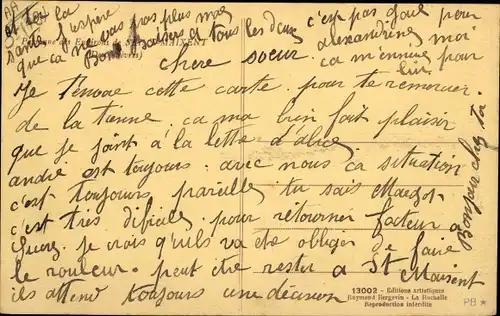 et toi la
santé j'espère
que ca ne vas pas plus mal
Bons Baisers a tous les deux
c'est pas gaie pour
alexandrine moi
ca m'ennuie pour
lui
chere soeur
Je t'envoie cette carte pour te remercier
de la tienne. ca ma bien fait plaisir
que je joint à la lettre d'alice
andre est toujours avec nous ca situation
c'est toujours pareille tu sais
c'est tres dificile pour retourner facteur
je crois qu'ils va etre obliger de faire
le rouleur. peut etre rester a St Maixent
ils attend toujours une décision
Bonjour chez toi
13002 - Editions artistiques
Raymond Bergevin - La Rochelle
Reproduction interdite
PB